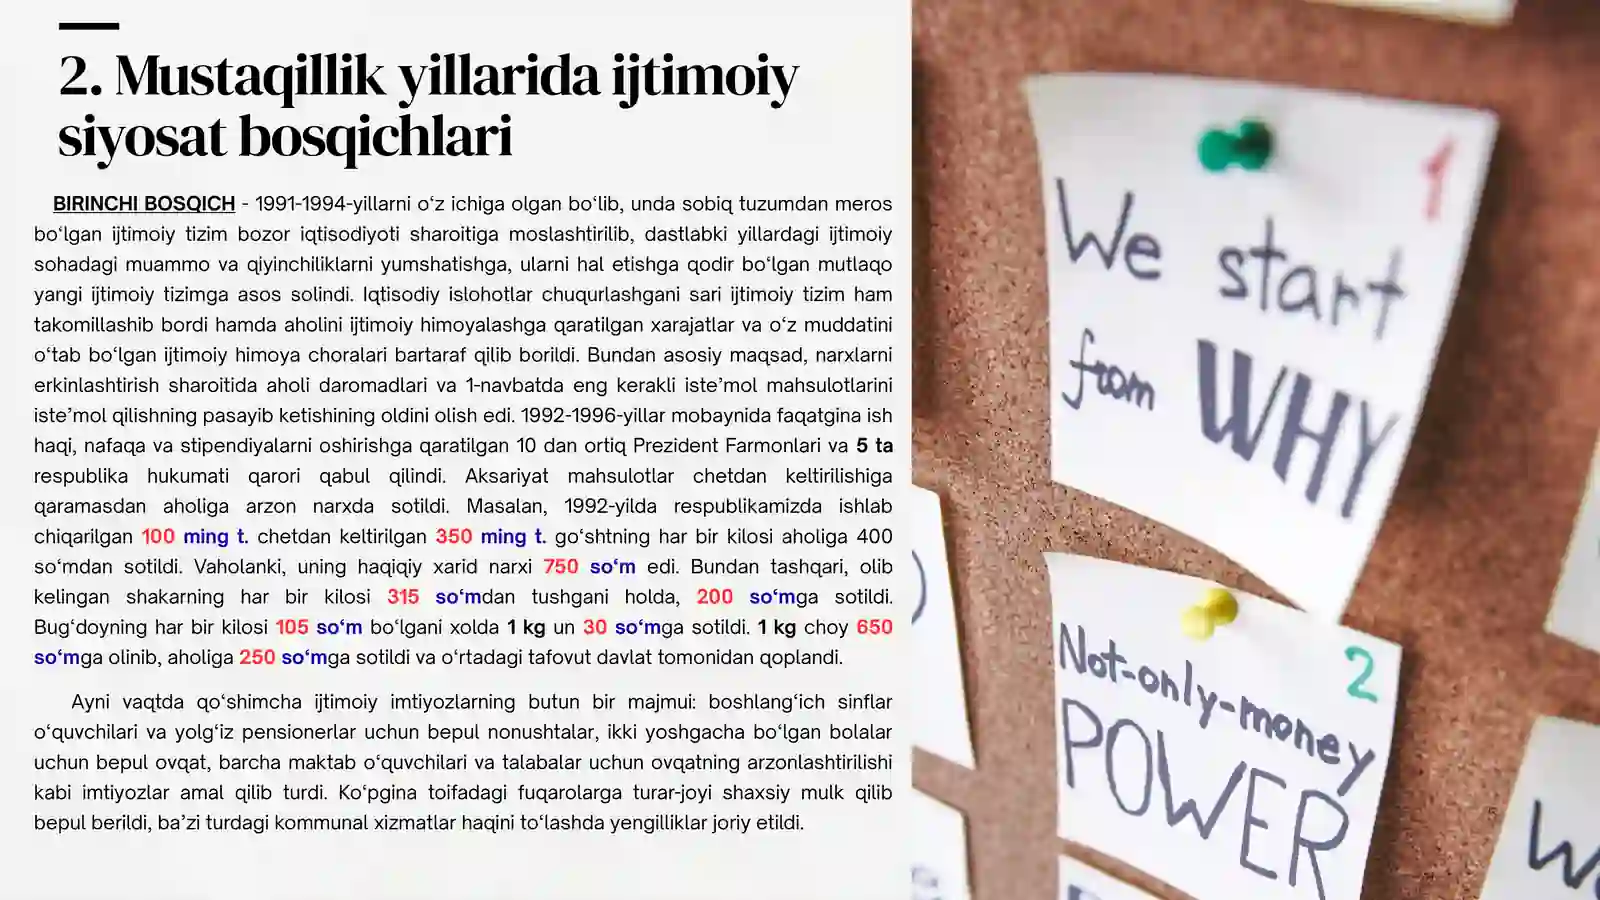 2. Mustaqillik yillarida ijtimoiy
siyosat bosqichlari
BIRINCHI BOSQICH - 1991-1994-yillarni o‘z ichiga olgan bo‘lib, unda sobiq tuzumdan meros
bo‘lgan ijtimoiy tizim bozor iqtisodiyoti sharoitiga moslashtirilib, dastlabki yillardagi ijtimoiy
sohadagi muammo va qiyinchiliklarni yumshatishga, ularni hal etishga qodir bo‘lgan mutlaqo
yangi ijtimoiy tizimga asos solindi. Iqtisodiy islohotlar chuqurlashgani sari ijtimoiy tizim ham
takomillashib bordi hamda aholini ijtimoiy himoyalashga qaratilgan xarajatlar va o‘z muddatini
o‘tab bo‘lgan ijtimoiy himoya choralari bartaraf qilib borildi. Bundan asosiy maqsad, narxlarni
erkinlashtirish sharoitida aholi daromadlari va 1-navbatda eng kerakli iste’mol mahsulotlarini
iste’mol qilishning pasayib ketishining oldini olish edi. 1992-1996-yillar mobaynida faqatgina ish
haqi, nafaqa va stipendiyalarni oshirishga qaratilgan 10 dan ortiq Prezident Farmonlari va 5 ta
respublika hukumati qarori qabul qilindi. Aksariyat mahsulotlar chetdan keltirilishiga
qaramasdan aholiga arzon narxda sotildi. Masalan, 1992-yilda respublikamizda ishlab
chiqarilgan 100 ming t. chetdan keltirilgan 350 ming t. go‘shtning har bir kilosi aholiga 400
so‘mdan sotildi. Vaholanki, uning haqiqiy xarid narxi 750 so‘m edi. Bundan tashqari, olib
kelingan shakarning har bir kilosi 315 so‘mdan tushgani holda, 200 so‘mga sotildi.
Bug‘doyning har bir kilosi 105 so‘m bo‘lgani xolda 1 kg un 30 so‘mga sotildi. 1 kg choy 650
so‘mga olinib, aholiga 250 so‘mga sotildi va o‘rtadagi tafovut davlat tomonidan qoplandi.
Ayni vaqtda qo‘shimcha ijtimoiy imtiyozlarning butun bir majmui: boshlang‘ich sinflar
o‘quvchilari va yolg‘iz pensionerlar uchun bepul nonushtalar, ikki yoshgacha bo‘lgan bolalar
uchun bepul ovqat, barcha maktab o‘quvchilari va talabalar uchun ovqatning arzonlashtirilishi
kabi imtiyozlar amal qilib turdi. Ko‘pgina toifadagi fuqarolarga turar-joyi shaxsiy mulk qilib
bepul berildi, ba’zi turdagi kommunal xizmatlar haqini to‘lashda yengilliklar joriy etildi.
1
We start
from WHY
2
Not-only-money
POWER